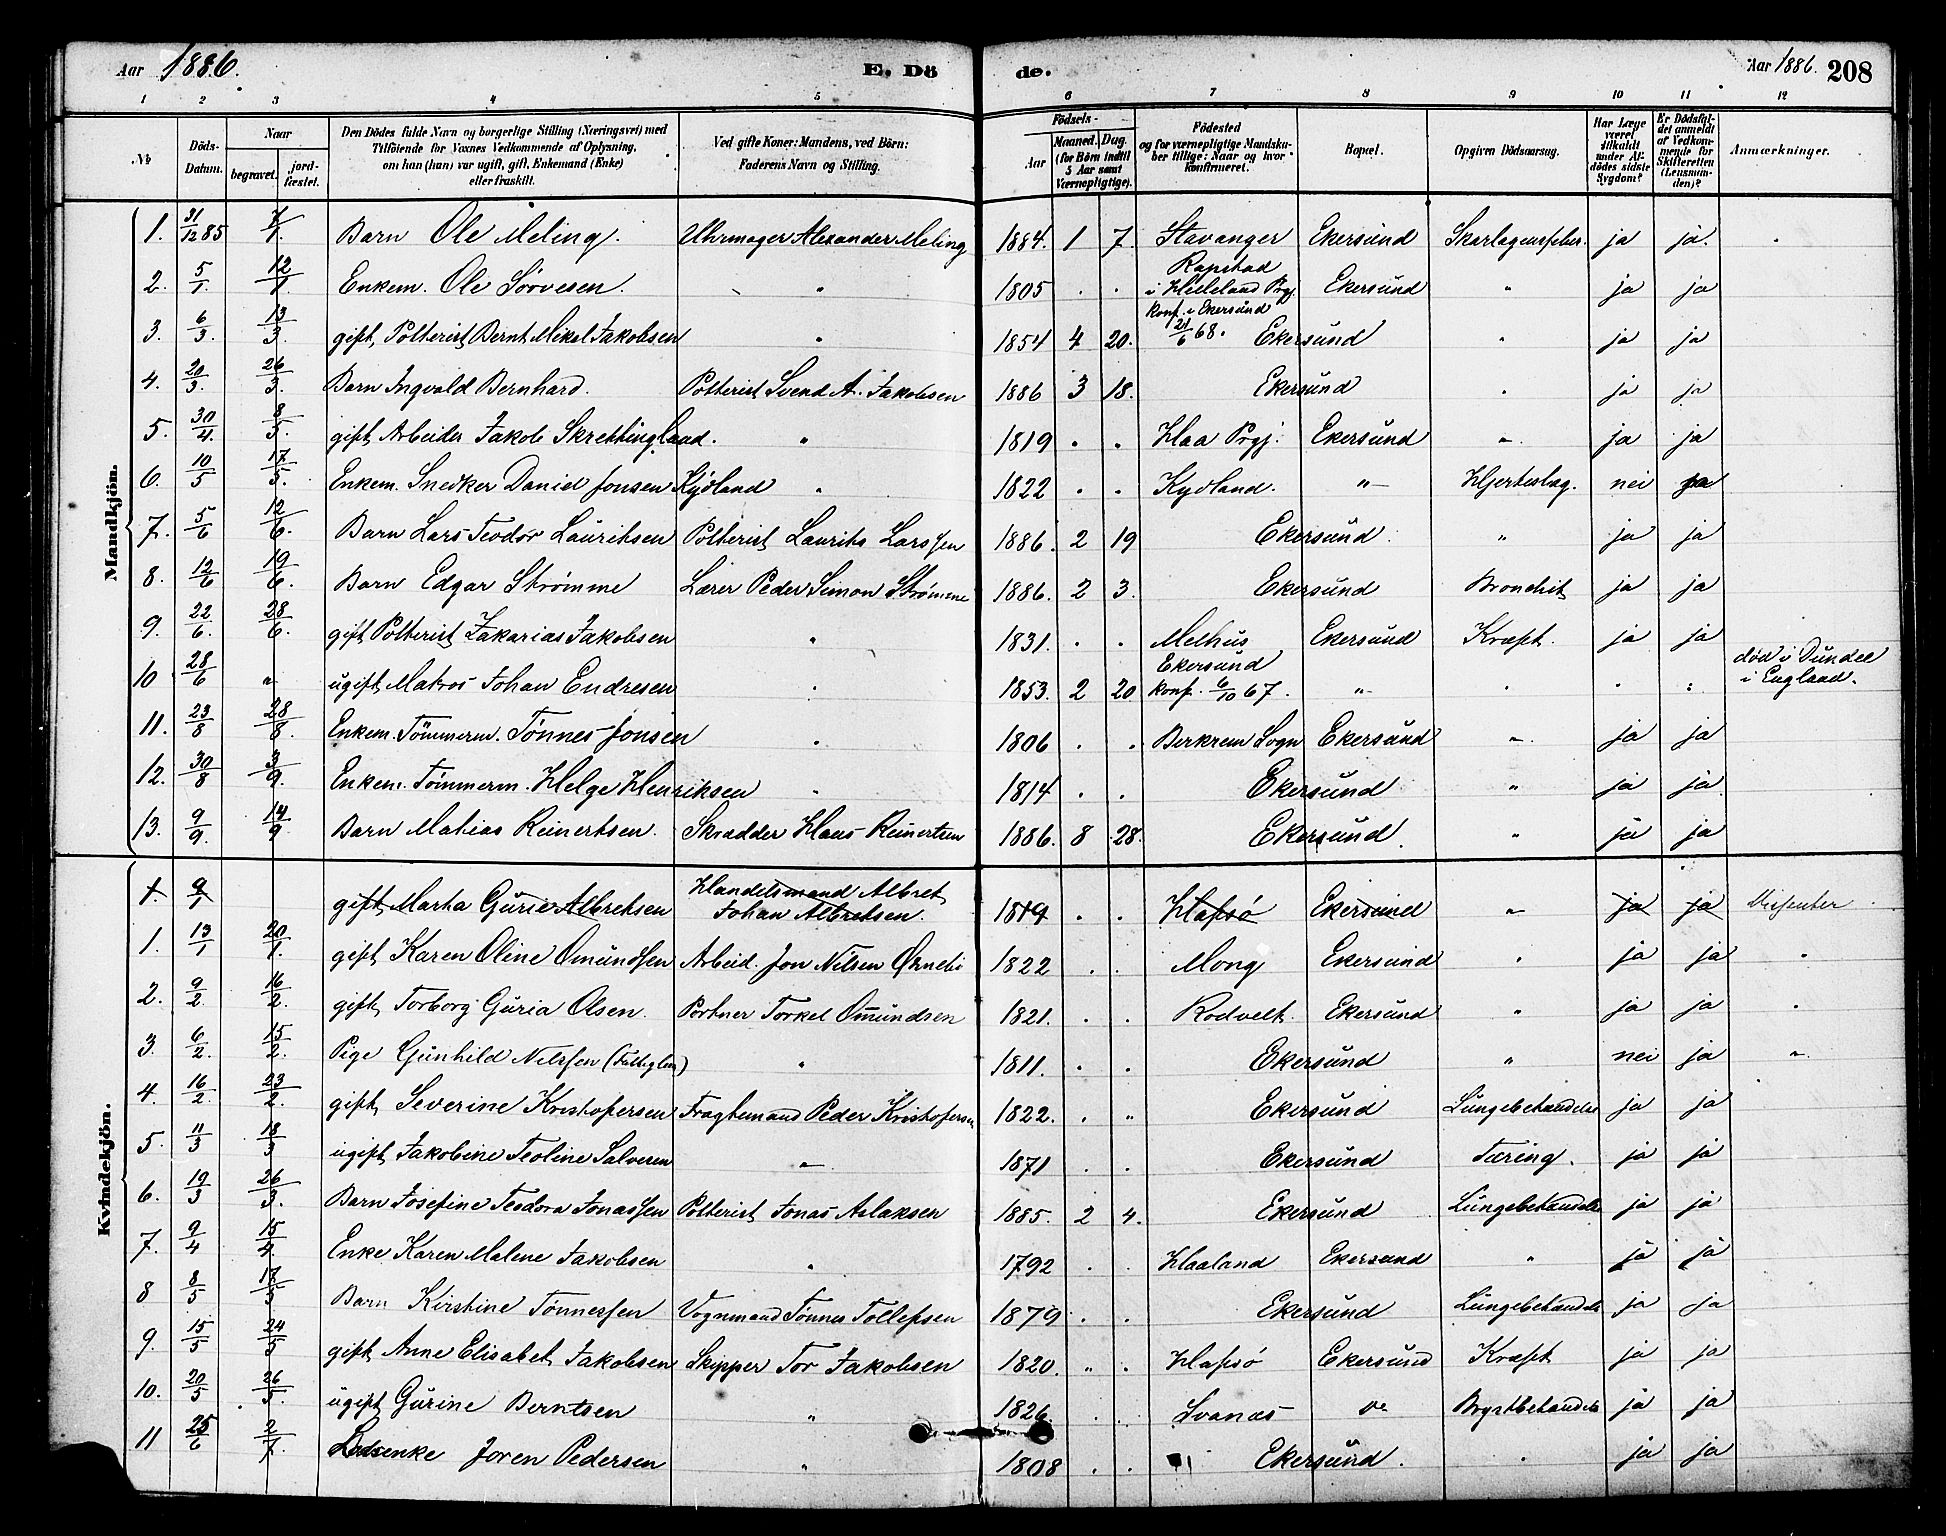 Aar 1886. E. Döde. Aar 1886. 208
1 2 3 4 5 6 7 8 9 10 11 12
No
Döds-Datum.
Naar
begravet. jordfæstet.
Den Dödes fulde Navn og borgerlige Stilling (Næringsvei) med
Tilföiende for Voxnes Vedkommende af Oplysning,
om han (hun) var ugift, gift, Enkemand (Enke)
eller fraskilt.
Ved gifte Koner: Mandens, ved Börn:
Faderens Navn og Stilling.
Födsels-
Aar Maaned. Dag.
(for Börn indtil
5 Aar samt
Værnepligtige).
Födested
og for værnepligtige Mandska-
ber tillige: Naar og hvor
konfirmeret.
Bopæl.
Opgiven Dödsaarsag.
Har Læge
været
tilkaldt
under Af-
dödes sidste
Sygdom?
Er Dödsfal-
det anmeldt
af Vedkom-
mende for
Skifteretten
(Lensman-
den)?
Anmærkninger.
Mandkjön.
1. 31/12 85 7/1. Barn Ole Meling. Uhrmager Alexander Meling 1884. 1 7. Stavanger Ekersund Skarlagensfeber. ja ja.
2. 5/1. 12/1. Enkem. Ole Sörvesen. " 1805 . . Rapstad i Helleland Prgj. Ekersund " ja ja
3. 6/3. 13/3. gift, Potterist Bernt Mikel Jakobsen " 1851 4 20. konf. i Ekersund 21/6 68. Ekersund " ja ja
4. 20/3. 26/3. Barn Ingvald Bernhard. Potterist Svend A. Jakobsen 1886 3 18. Ekersund " ja ja
5. 30/4. 8/5. gift Arbeider Jakob Skrettingland. " 1819 . . Haa Prgj. Ekersund " ja ja
6. 10/5 17/5. Enkem. Snedker Daniel Jonsen Kydland " 1822 . . Kydland. " Hjerteslag. nei ja
7. 5/6 12/6. Barn Lars Teodor Lauritsen Potterist Laurits Larssen 1886. 2 19 Ekersund. " ja ja
8. 12/6 19/6. Barn Edgar Strømme Lærer Peder Simon Strømme 1886. 2 3. Ekersund Bronchit ja ja
9. 22/6. 28/6. gift Potterist Zakarias Jakobsen " 1831. . . Melhus Ekersund Kræft. ja ja
10 28/6 " ugift Matros Johan Endresen " 1853. 2 20 Ekersund konf. 6/10 67. " " " : død i Dundee i England.
11. 23/8 28/8. Enkem. Tømmerm. Tønnes Jonsen " 1806 . . Berkrem Sogn Ekersund " ja ja
12. 30/8 3/9. Enkem. Tømmerm. Helge Henriksen " 1814 . . Ekersund " ja ja
13. 9/9. 14/9 Barn Mathias Reinertsen. Skradder Hans Reinertsen 1886. 8 28. Ekersund. " ja ja
Kvindekjön.
1. 9/1 gift Marta Gurie Albretsen Handelsmand Albret Johan Albretsen. 1819 . . Hafsø Ekersund " ja ja Dissenter.
1. 13/1 20/1. gift Karen Oline Omundsen Arbeid. Jon Nilsen 1822 . . Mong Ekersund " ja ja "
2. 9/2 16/2. gift, Torborg Guria Olsen. Portner Torkel Omundsen 1821. . . Rodvelt. Ekersund " ja ja "
3. 6/2. 15/2. Pige Gunhild Nilssen (Fattiglem) " 1811. . . Ekersund " nei ja "
4. 16/2. 23/2. gift, Severine Kristofersen Fragtemand Peder Kristofersen 1822. . " Ekersund Lungebetændelse ja ja
5. 11/3 18/3 ugift, Jakobine Teoline Salvesen " 1871 . . Ekersund Tæring. ja ja
6. 19/3 26/3. Barn Josefine Teodora Jonassen Potterist Jonas Aslaksen 1885. 2 4. Ekersund Lungebetændelse ja ja
7. 9/4 15/4. Enke Karen Malene Jakobsen " 1792 . . Haaland Ekersund " ja ja
8 8/5 17/5 Barn Kirstine Tønnessen Vognmand Tønnes Tollefsen 1879 . . Ekersund Lungebetændelse ja ja
9. 15/5 24/5 gift, Anne Elisabet Jakobsen Skipper Tor Jakobsen 1820. " . Hafsø Ekersund Kræft ja ja
10. 20/5 26/5. ugift Gurine Berntsen " 1826. . . Svanæs do Brystbetændelse ja ja
11 25/6 2/7. Lodsenke Joren Pedersen " 1808 . . Ekersund. " ja ja